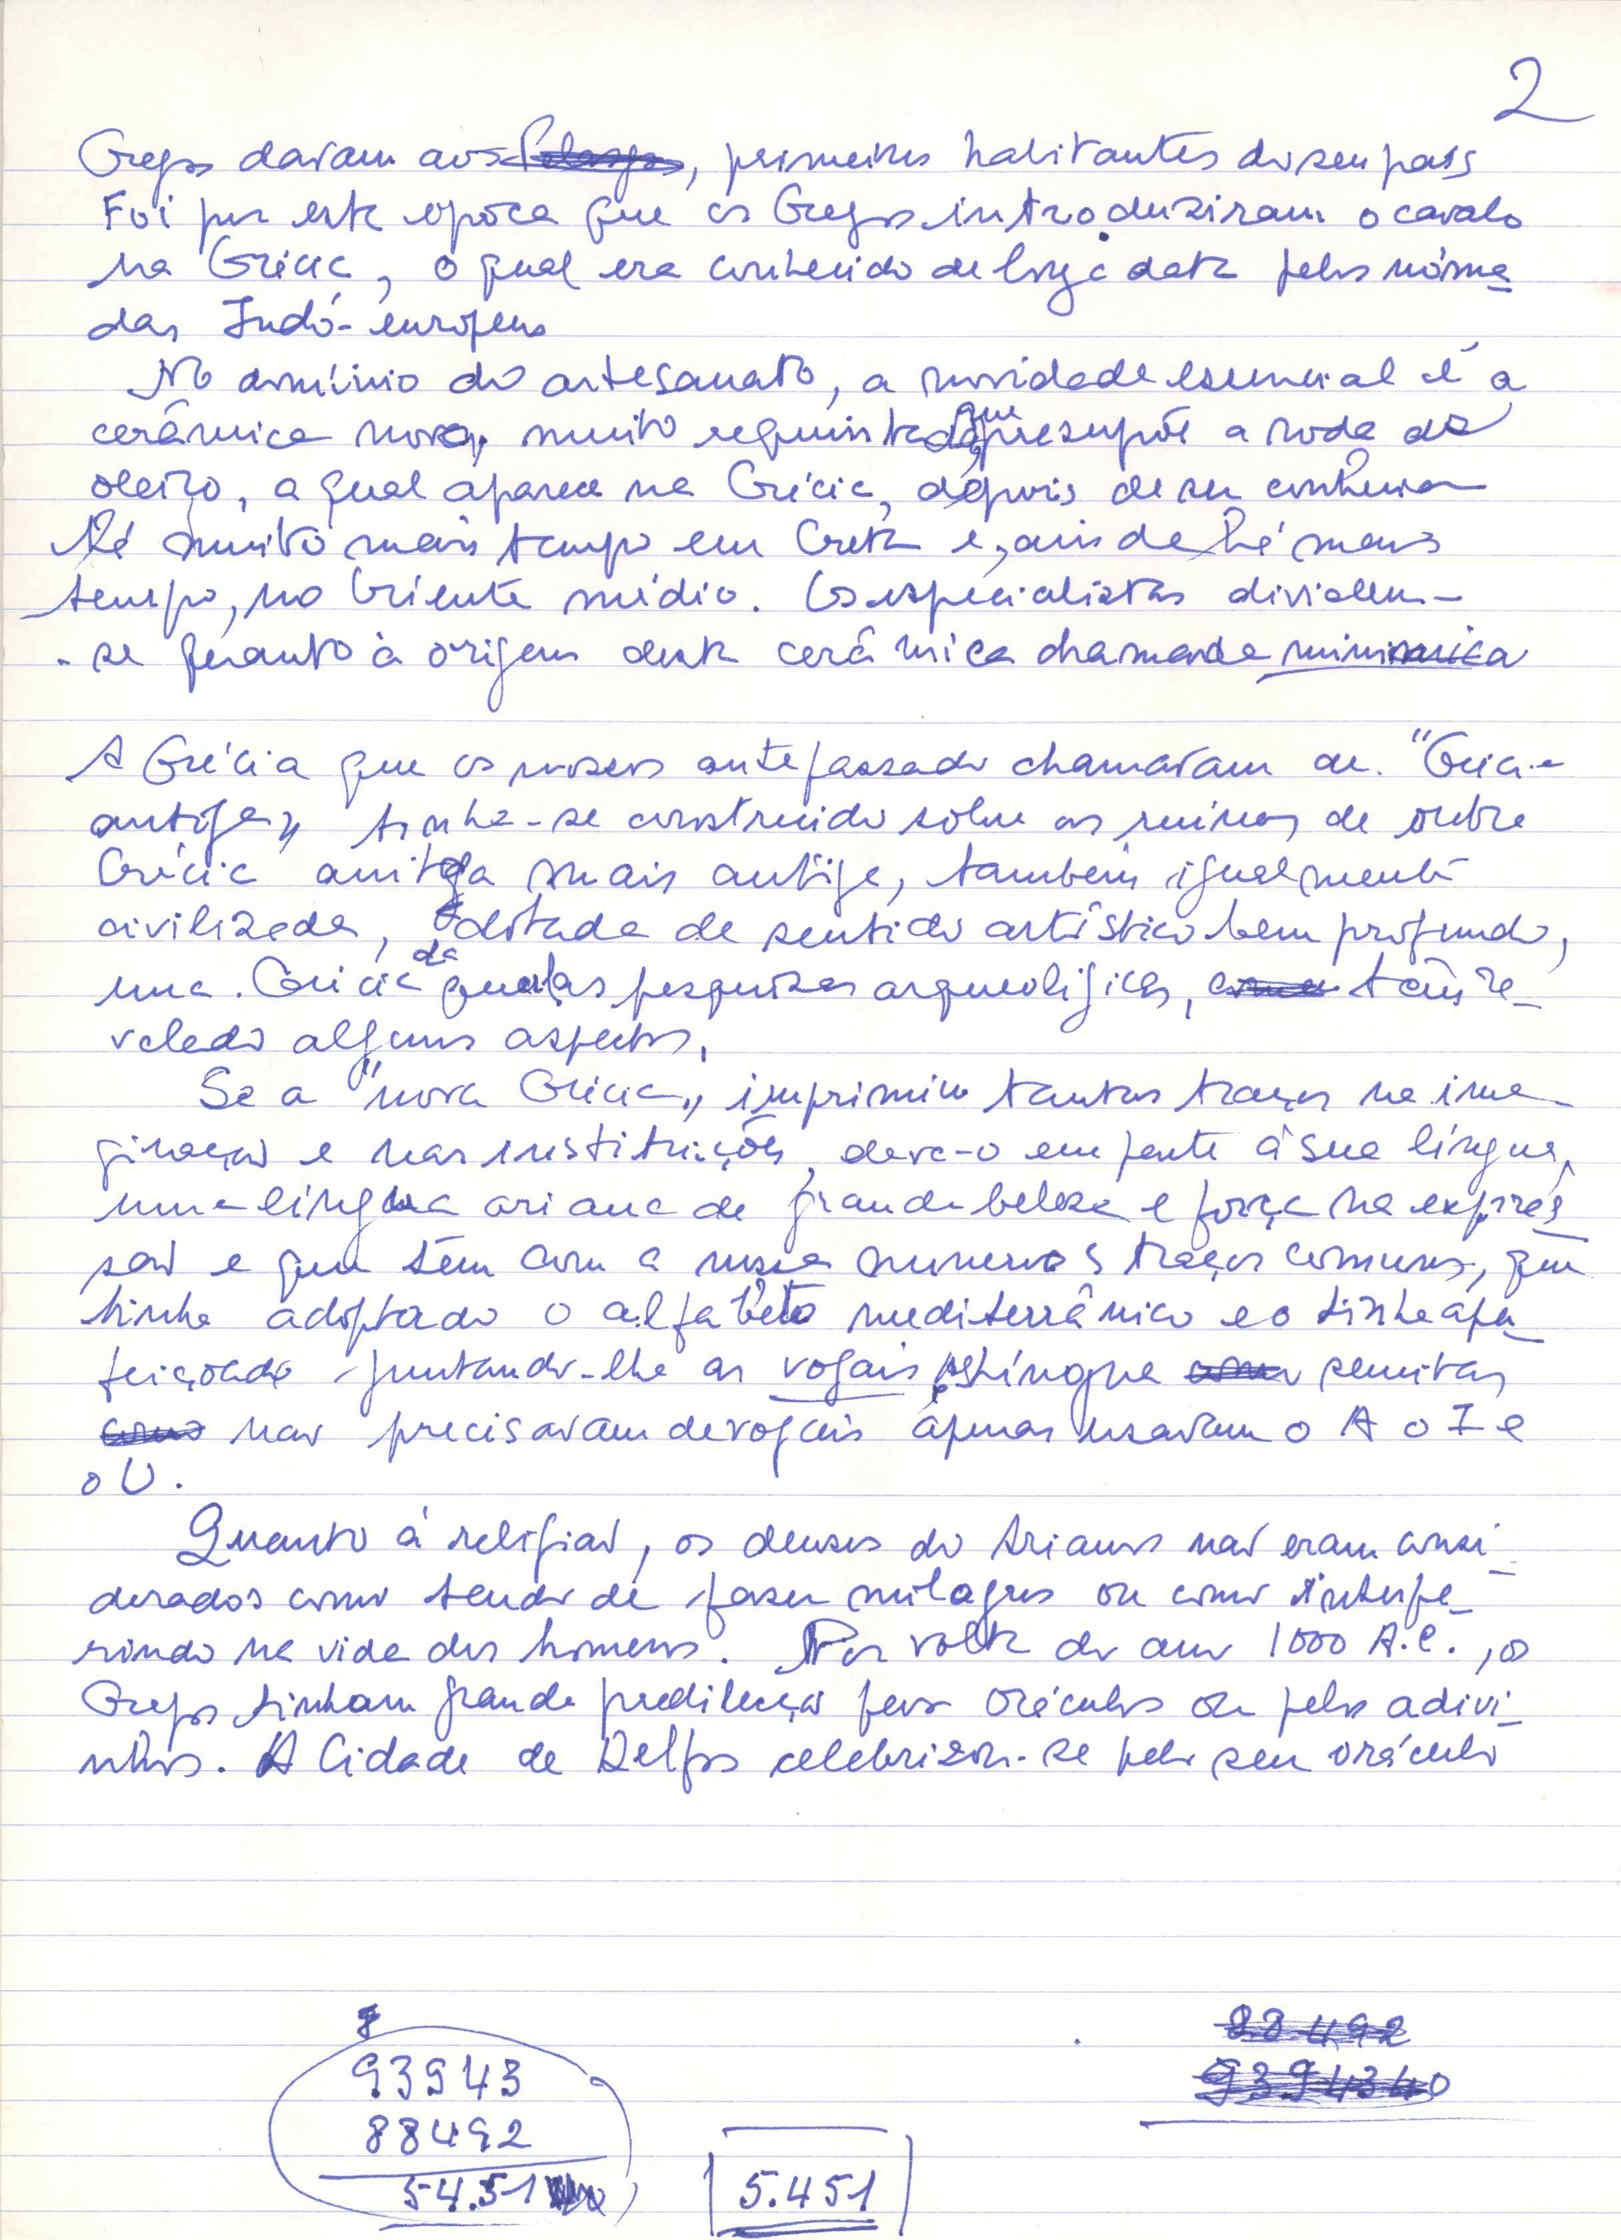 2
Gregos davam aos Pelasgos, primeiros habitantes do seu país
Foi por esta epoca que os Gregos introduziram o cavalo
na Grécia, o qual era conhecido de longa data pelos nóma
das Indó-europeus
No domínio do artesanato, a novidade essencial é a
cerâmica nova, muito requintada que presupõe a roda de
oleiro, a qual aparece na Grécia, depois de ser conhecida
há muito mais tempo em Creta e, ainda há mais
tempo, no Oriente médio. Os especialistas dividem-
-se quanto à origem desta cerâmica chamada
A Grécia que os nossos antepassado chamavam de "Grécia
antiga" tinha-se construido sobre as ruinas de outra
Grécia mais antiga, também igualmente
civilizada, dotada de sentido artístico bem profundo,
uma Grécia da qual as pesquisas arqueológicas, têm re-
velado alguns aspectos.
Se a "nova Grécia" imprimiu tantos traços na ima-
ginação e nas instituições, deve-o em parte à sua língua,
uma lingua ariana de grande beleza e força na expres
são e que têm com a nossa numeros traços comuns, que
tinha adoptado o alfabeto mediterrânico e o tinha apr
feiçoado juntando-lhe as vogais as língua semitas
não precisavam de vogais apenas usavam o A o I e
o U.
Quanto á religião, os deuses do Arianos não eram consi-
derados como sendo de fazer milagres ou como interfe-
rindo na vida dos homens. Por volta do ano 1000 A.C., os
Gregos tinham grande predilecção pelos oráculos ou pelos adivi-
nhos. A Cidade de Delfos celebrizou-se pelo seu oráculo
8
93943
88492
54.51
5.451
88492
9394340